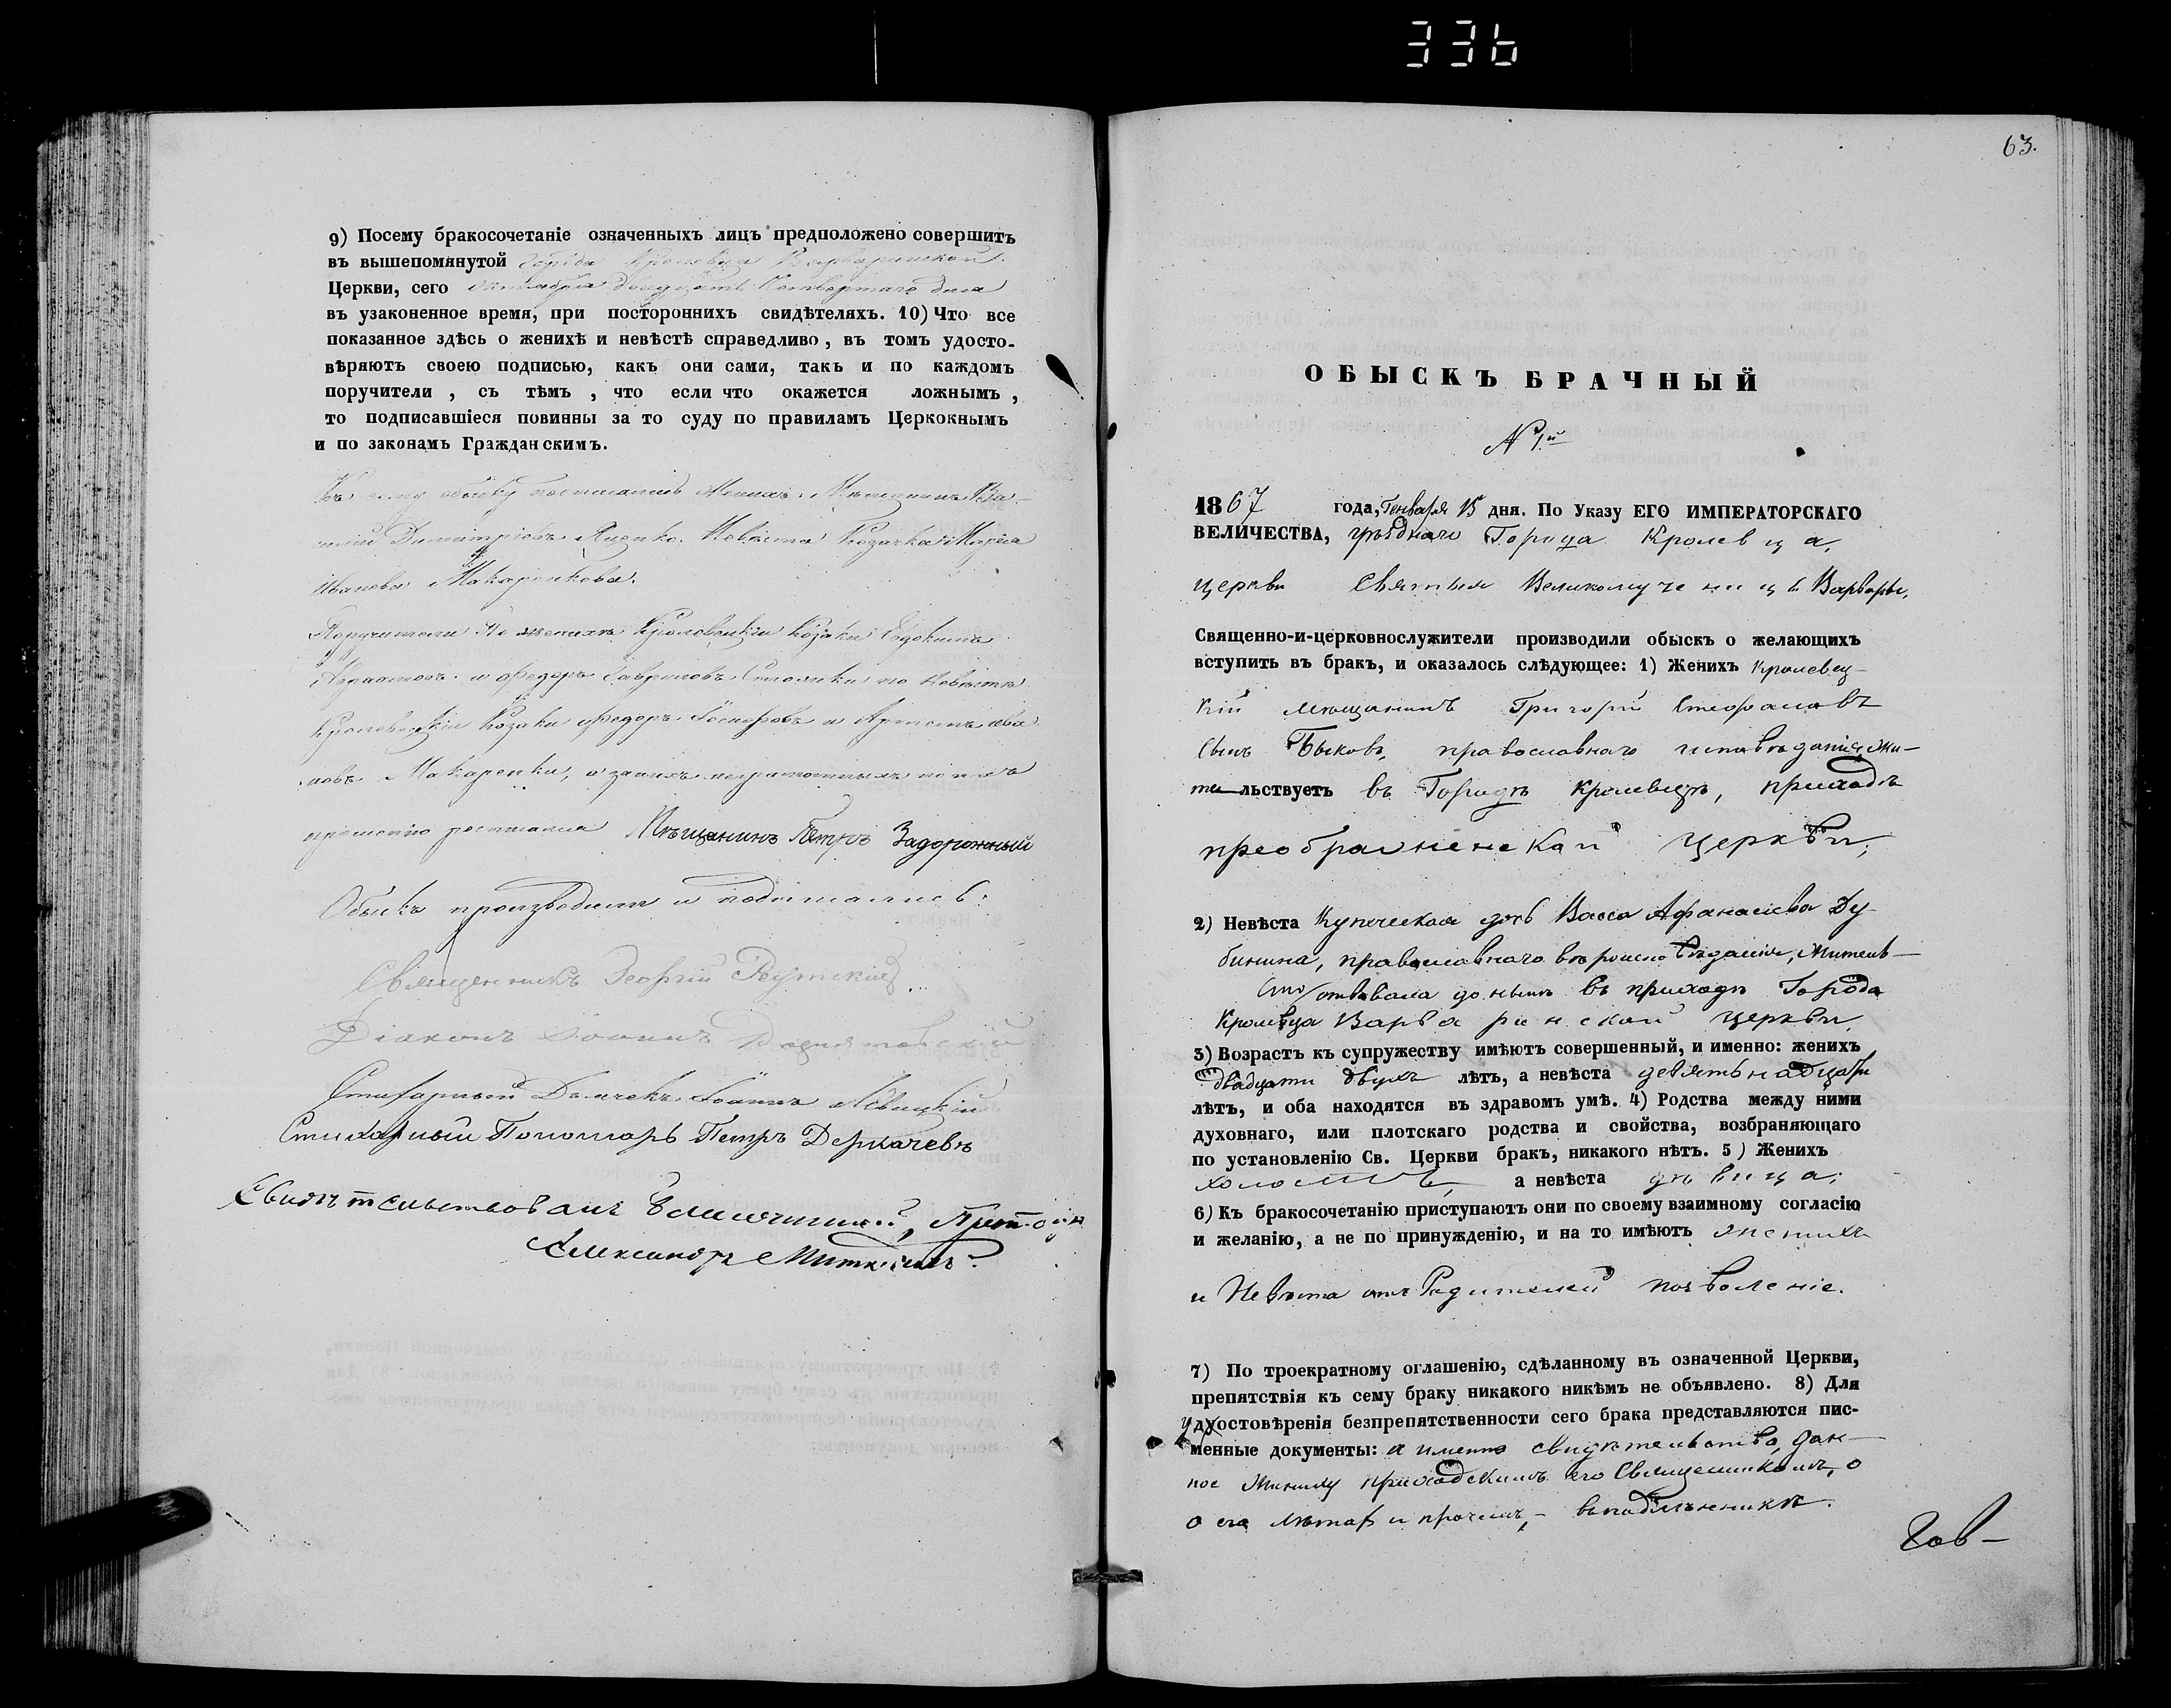 336
9) Посему бракосочетаніе означенныхъ лицъ предположено совершить
въ вышепомянутой города Кролевца Варваринской
Церкви, сего октября двадцать четвертаго дня
въ узаконенное время, при постороннихъ свидѣтеляхъ. 10) Что все
показанное здѣсь о женихѣ и невѣстѣ справедливо, въ томъ удосто-
вѣряютъ своею подписью, какъ они сами, такъ и по каждомъ
поручители, съ тѣмъ, что если что окажется ложнымъ,
то подписавшіеся повинны за то суду по правиламъ Церкокнымъ
и по законамъ Гражданскимъ.
Къ сему обыску Женихъ Мѣщанинъ Ва-
Димитріевъ Яценко. Невѣста Козачка Марія
Иванова Макаренкова.
Поручители По женихѣ Кролевецкіи Козаки Евдокимъ
и Федоръ Гавриловъ по Невѣстѣ
Кролевецкіи Козаки Федоръ и Артемъ
Макаренки, а за нихъ неграмотныхъ по ихъ
прошенію росписался Мѣщанинъ Петръ Задорожный
Обыскъ производили и подписались:
Священникъ Георгій
Діаконъ Іоаннъ
Стихарный Дьячекъ Іоаннъ Левицкій
Стихарный Пономарь Петръ Деркачевъ
Свидѣтельствовалъ Благочинный, Протоіер
Александръ
63.
ОБЫСКЪ БРАЧНЫЙ
№ 1й
1867 года, Генваря 15 дня. По Указу ЕГО ИМПЕРАТОРСКАГО
ВЕЛИЧЕСТВА, уѣзднаго Города Кролевца,
церкви Святыя Великомученицы Варвары,
Священно-и-церковнослужители производили обыскъ о желающихъ
вступить въ бракъ, и оказалось слѣдующее: 1) Женихъ Кролевец-
кій мѣщанинъ Григорій Стефановъ
сынъ Быковъ, православнаго исповѣданія, жи-
тельствуетъ въ Городѣ Кролевцѣ, приходѣ
преображенской церкви;
2) Невѣста Купеческая дочь Васса Афанасіева Ду-
бинина, православнаго вѣроисповѣданія, жительствовала до нынѣ въ приходѣ Города
Кролевца Варваринской церкви.
3) Возрастъ къ супружеству имѣютъ совершенный, и именно: женихъ
двадцати двухъ лѣтъ, а невѣста девятьнадцати
лѣтъ, и оба находятся въ здравомъ умѣ. 4) Родства между ними
духовнаго, или плотскаго родства и свойства, возбраняющаго
по установленію Св. Церкви бракъ, никакого нѣтъ. 5) Женихъ
холостъ, а невѣста дѣвица;
6) Къ бракосочетанію приступаютъ они по своему взаимному согласію
и желанію, а не по принужденію, и на то имѣютъ женихъ
и Невѣста отъ Родителей позволеніе.
7) По троекратному оглашенію, сдѣланному въ означенной Церкви,
препятствія къ сему браку никакого никѣмъ не объявлено. 8) Для
удостовѣренія безпрепятственности сего брака представляются пис-
менные документы: а именно свидѣтельство, дан-
ное Жениху приходскимъ его Священникомъ, о
о его лѣтахъ и прочемъ, - въ подлинникѣ.
Гов-